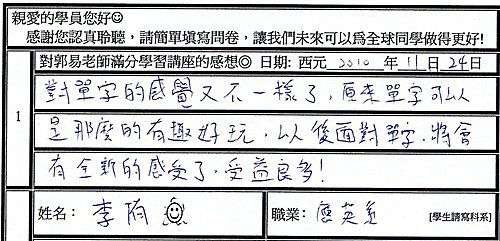 親愛的學員您好☺
感謝您認真聆聽，請簡單填寫問卷，讓我們未來可以為全球同學做得更好!
對郭易老師滿分學習講座的感想◎ 日期: 西元 2010 年 11 月 24 日
1
對單字的感覺又不一樣了，原來單字可以
是那麼的有趣好玩，以後面對單字，將會
有全新的感受了，受益良多!
姓名： 李 職業： 應英系 [學生請寫科系]